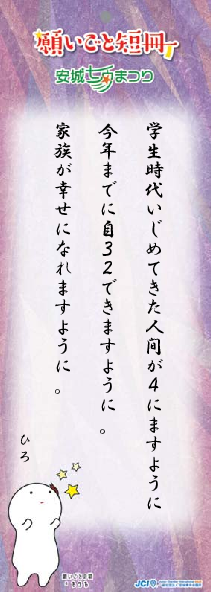 願いごと短冊
安城七夕まつり
学生時代いじめてきた人間が4にますように
今年までに自32できますように。
家族が幸せになれますように。
ひろ
JCI